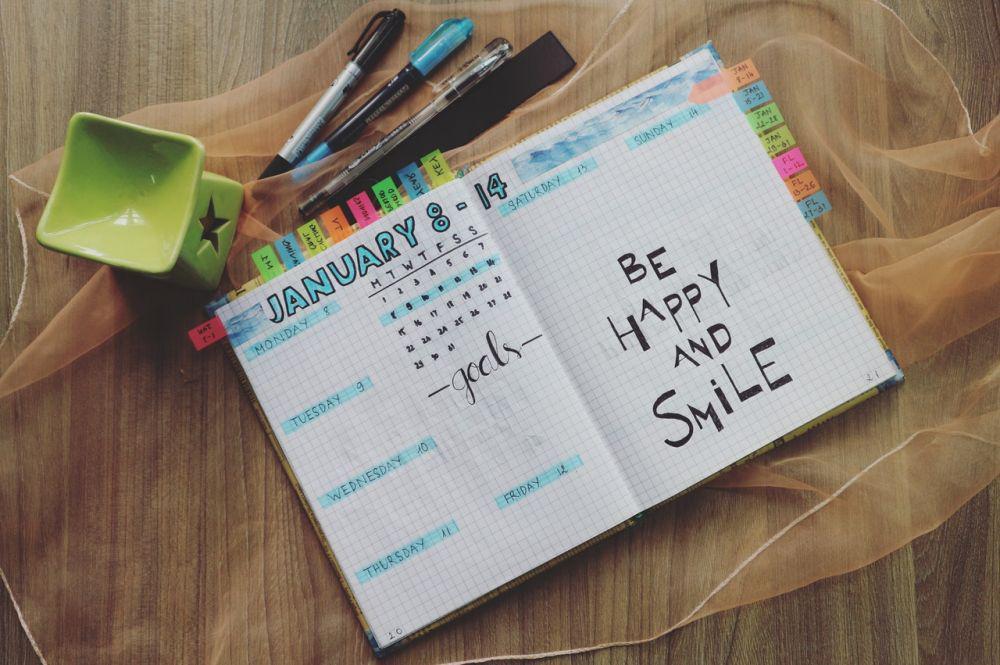 JANUARY 8-14
M T W T F S S
1 2 3 4 5 6 7
8 9 10 11 12 13 14
15 16 17 18 19 20 21
22 23 24 25 26 27 28
29 30 31
goals
MONDAY 8
TUESDAY 9
WEDNESDAY 10
THURSDAY 11
FRIDAY 12
20
SATURDAY 13
SUNDAY 14
BE
HAPPY
AND
SMiLE
21
KEY
JAN
8-14
JAN
15-21
JAN
22-28
JAN
FL
FL
FL